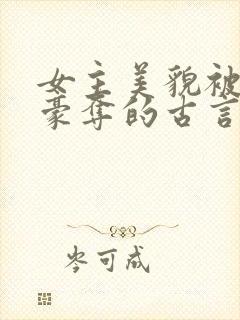 女主美貌被
豪夺的古言
岑可咸